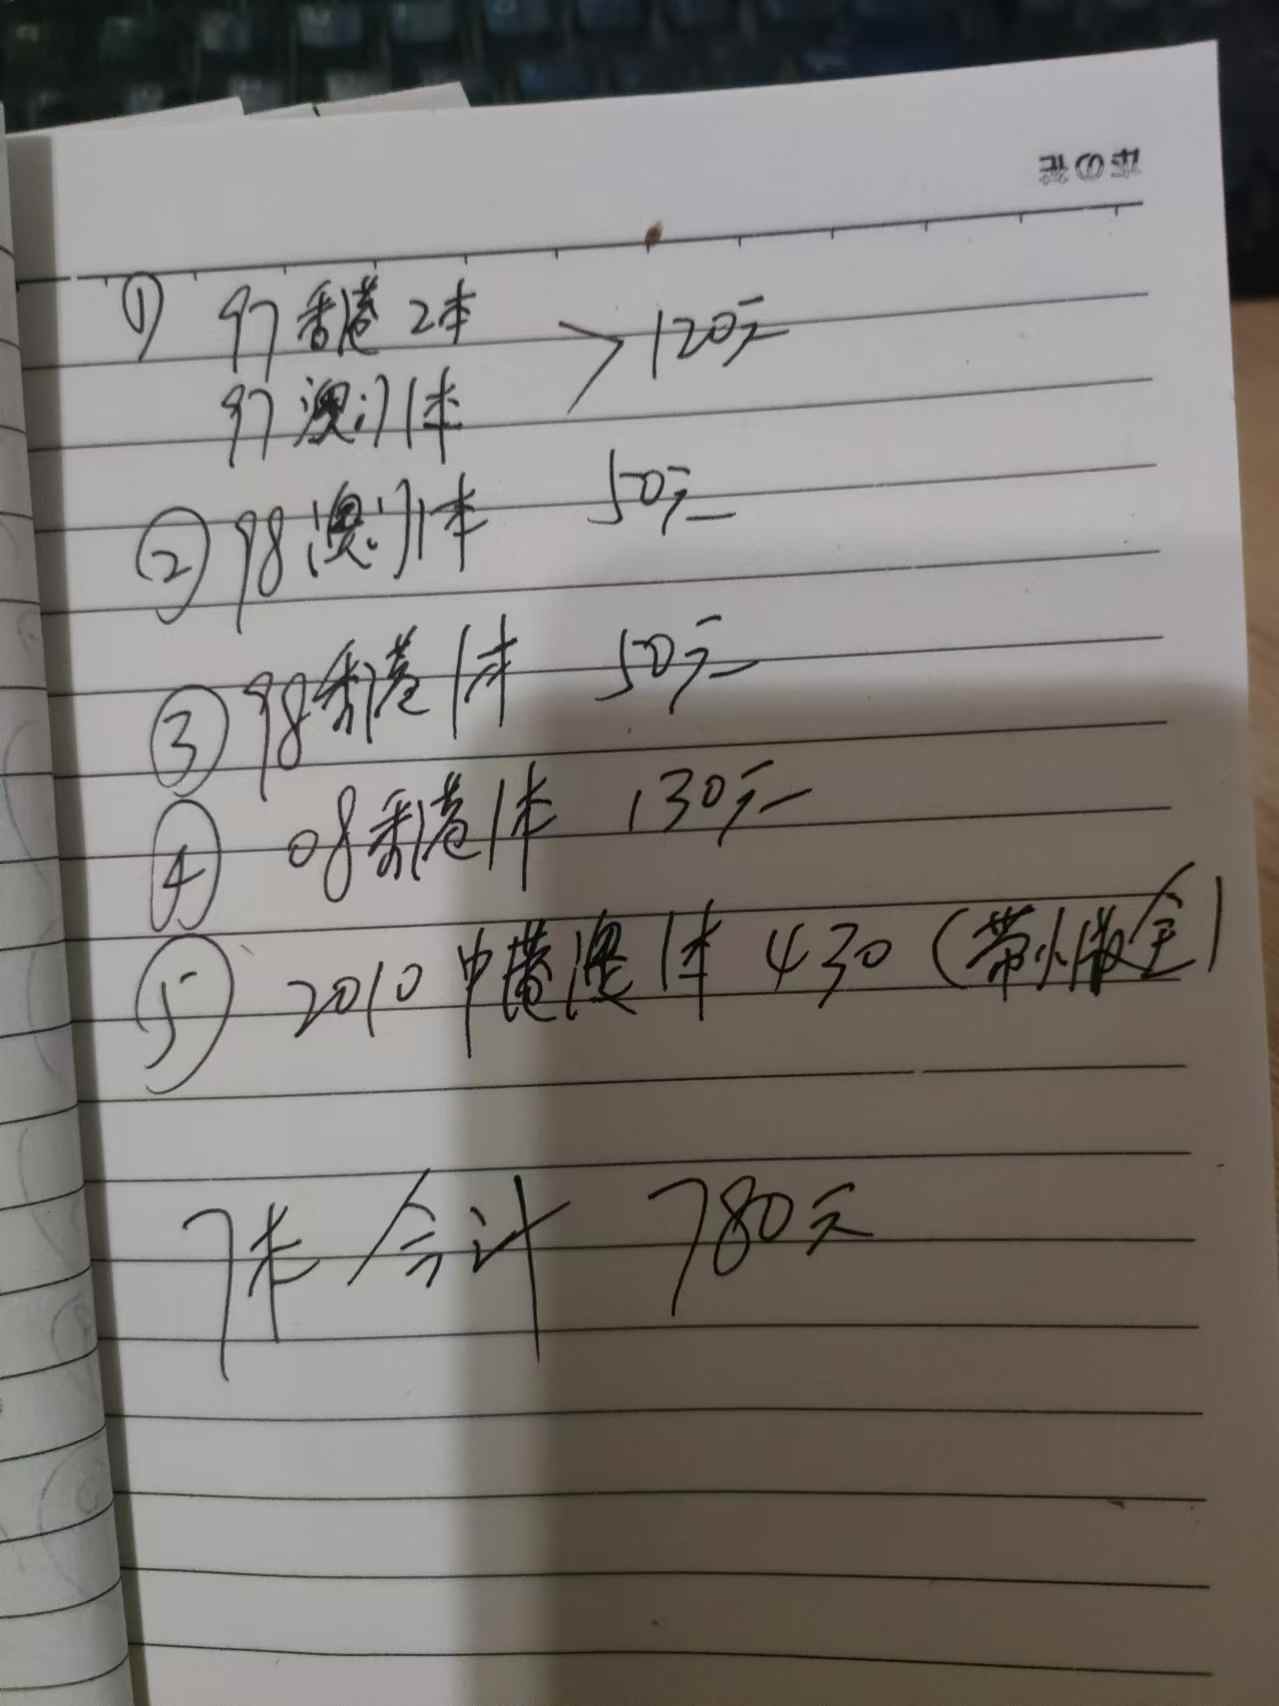 ① 97香港2本 > 120元
97澳门1本
② 98澳门1本 50元
③ 98香港1本 50元
④ 08香港1本 130元
⑤ 2010中港澳1本 430(带小版全)
7本合计 780元